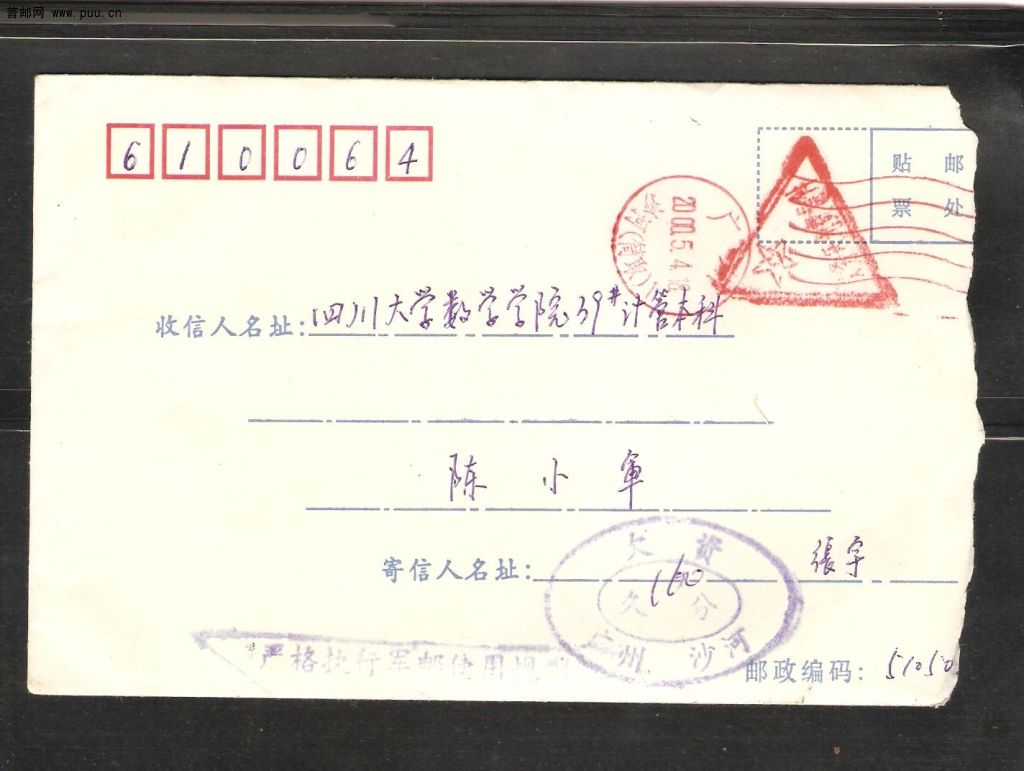 普邮网 www.puu.cn
610064
贴 邮
票 处
广
2000.5.4.18
收信人名址:四川大学数学学院39#计管本科
陈小軍
寄信人名址: 張宇
欠 资
欠 160 分
广州 沙河
严格执行军邮使用规
邮政编码: 51050